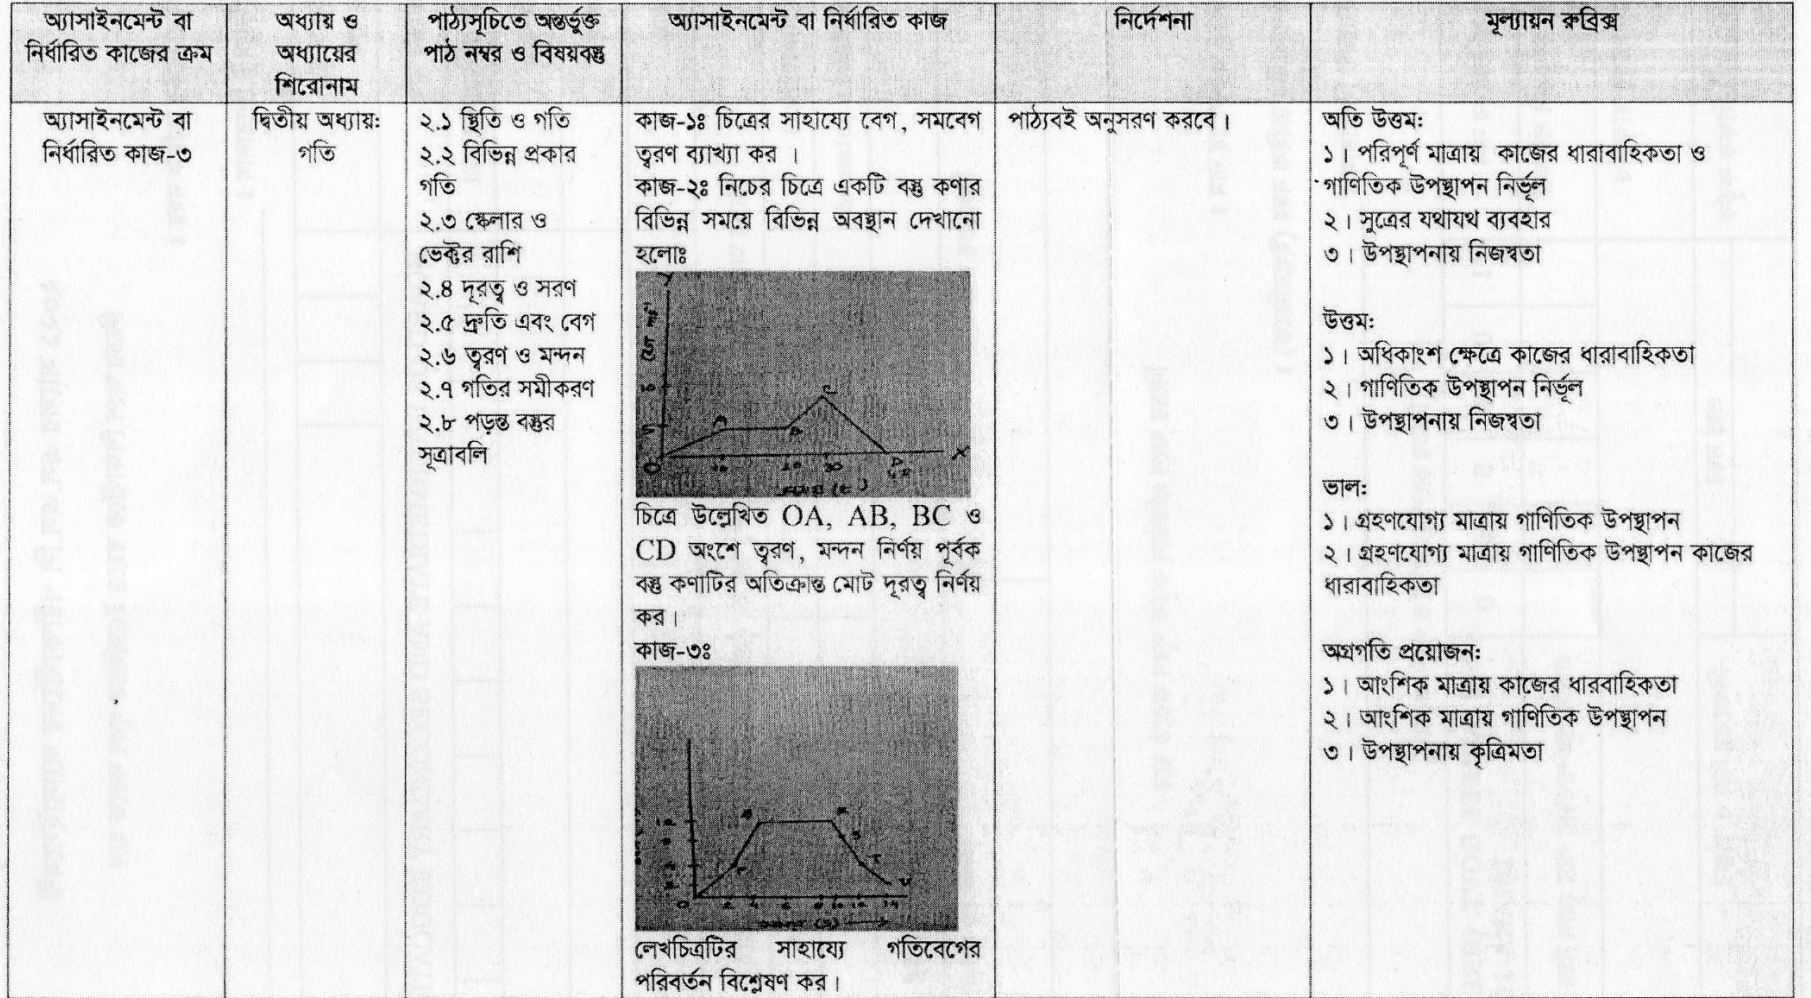 অ্যাসাইনমেন্ট বা
নির্ধারিত কাজের ক্রম
অধ্যায় ও
অধ্যায়ের
শিরোনাম
পাঠ্যসূচিতে অন্তর্ভুক্ত
পাঠ নম্বর ও বিষয়বস্তু
অ্যাসাইনমেন্ট বা নির্ধারিত কাজ
নির্দেশনা
মূল্যায়ন রুব্রিক্স
অ্যাসাইনমেন্ট বা
নির্ধারিত কাজ-৩
দ্বিতীয় অধ্যায়:
গতি
২.১ স্থিতি ও গতি
২.২ বিভিন্ন প্রকার
গতি
২.৩ স্কেলার ও
ভেক্টর রাশি
২.৪ দূরত্ব ও সরণ
২.৫ দ্রুতি এবং বেগ
২.৬ ত্বরণ ও মন্দন
২.৭ গতির সমীকরণ
২.৮ পড়ন্ত বস্তুর
সূত্রাবলি
কাজ-১ঃ চিত্রের সাহায্যে বেগ, সমবেগ
ত্বরণ ব্যাখ্যা কর ।
কাজ-২ঃ নিচের চিত্রে একটি বস্তু কণার
বিভিন্ন সময়ে বিভিন্ন অবস্থান দেখানো
হলোঃ
চিত্রে উল্লেখিত OA, AB, BC ও
CD অংশে ত্বরণ, মন্দন নির্ণয় পূর্বক
বস্তু কণাটির অতিক্রান্ত মোট দূরত্ব নির্ণয়
কর।
কাজ-৩ঃ
লেখচিত্রটির সাহায্যে গতিবেগের
পরিবর্তন বিশ্লেষণ কর।
পাঠ্যবই অনুসরণ করবে।
অতি উত্তম:
১। পরিপূর্ণ মাত্রায় কাজের ধারাবাহিকতা ও
গাণিতিক উপস্থাপন নির্ভূল
২। সুত্রের যথাযথ ব্যবহার
৩। উপস্থাপনায় নিজস্বতা
উত্তম:
১। অধিকাংশ ক্ষেত্রে কাজের ধারাবাহিকতা
২। গাণিতিক উপস্থাপন নির্ভূল
৩। উপস্থাপনায় নিজস্বতা
ভাল:
১। গ্রহণযোগ্য মাত্রায় গাণিতিক উপস্থাপন
২। গ্রহণযোগ্য মাত্রায় গাণিতিক উপস্থাপন কাজের
ধারাবাহিকতা
অগ্রগতি প্রয়োজন:
১। আংশিক মাত্রায় কাজের ধারবাহিকতা
২। আংশিক মাত্রায় গাণিতিক উপস্থাপন
৩। উপস্থাপনায় কৃত্রিমতা